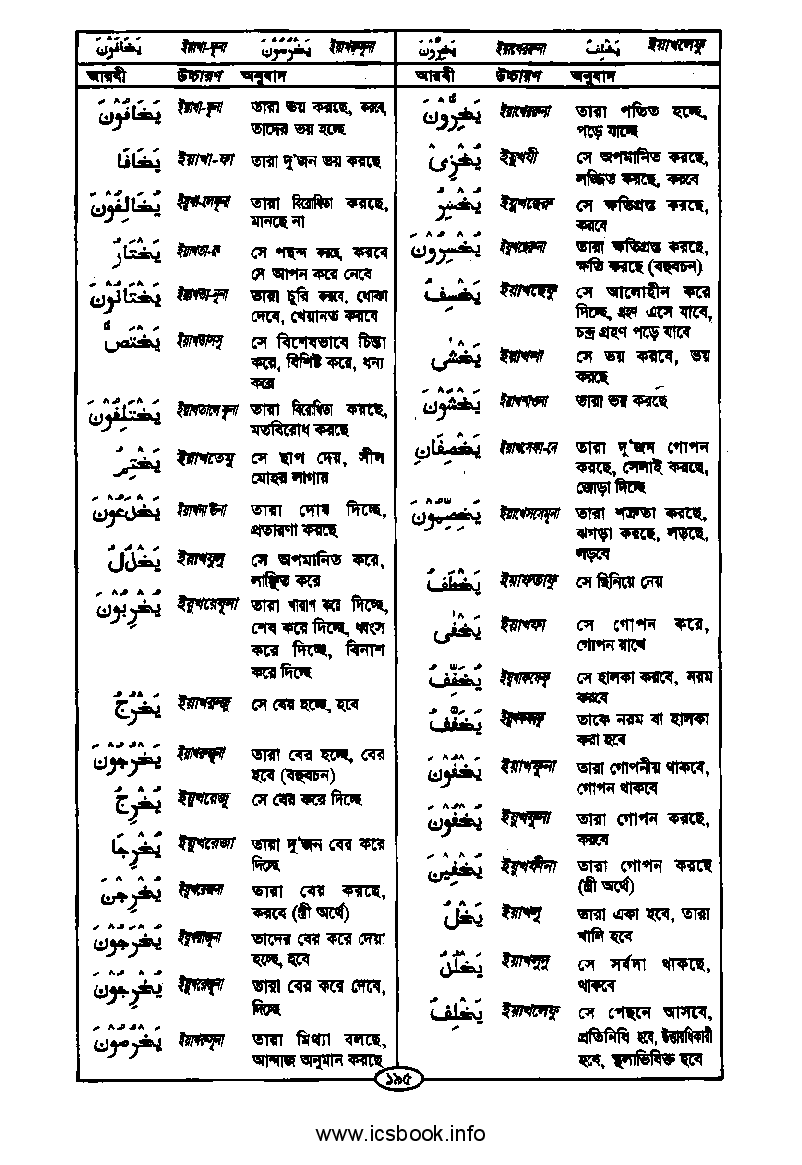 يَخَافُوْنَ ইয়াখা-ফূনা يَخْرُصُوْنَ ইয়াখরুছূনা
আরবী উচ্চারণ অনুবাদ
يَخَافُوْنَ ইয়াখা-ফূনা তারা ভয় করছে, করবে,
তাদের ভয় হচ্ছে
يَخَافَا ইয়াখা-ফা তারা দু'জন ভয় করছে
يُخَالِفُوْنَ ইয়ুখা-লেফূনা তারা বিরোধিতা করছে,
মানছে না
يَخْتَارُ ইয়াখতা-রু সে পছন্দ করছে, করবে
সে আপন করে নেবে
يَخْتَانُوْنَ ইয়াখতা-নূনা তারা চুরি করবে, ধোকা
দেবে, খেয়ানত করবে
يَخْتَصُّ ইয়াখতাসসু সে বিশেষভাবে চিন্তা
করে, বিশিষ্ট করে, ধন্য
করে
يَخْتَلِفُوْنَ ইয়াখতালেফূনা তারা বিরোধিতা করছে,
মতবিরোধ করছে
يَخْتِمُ ইয়াখতেমু সে ছাপ দেয়, সীল
মোহর লাগায়
يَخْدَعُوْنَ তারা দোষ দিচ্ছে,
প্রতারণা করছে
يَخْذُلُ ইয়াখযুলু সে অপমানিত করে,
লাঞ্ছিত করে
يُخْرِبُوْنَ ইয়ুখরেবূনা তারা খারাপ করে দিচ্ছে,
শেষ করে দিচ্ছে, ধ্বংস
করে দিচ্ছে, বিনাশ
করে দিচ্ছে
يَخْرُجُ ইয়াখরুজু সে বের হচ্ছে, হবে
يَخْرُجُوْنَ ইয়াখরুজূনা তারা বের হচ্ছে, বের
হবে (বহুবচন)
يُخْرِجُ ইয়ুখরেজু সে বের করে দিচ্ছে
يُخْرِجَا ইয়ুখরেজা তারা দু'জন বের করে
দিচ্ছে
يُخْرِجْنَ ইয়ুখরেজনা তারা বের করছে,
করবে (স্ত্রী অর্থে)
يُخْرَجُوْنَ ইয়ুখরাজূনা তাদের বের করে দেয়া
হচ্ছে, হবে
يُخْرِجُوْنَ ইয়ুখরেজূনা তারা বের করে দেবে,
দিচ্ছে
يَخْرُصُوْنَ ইয়াখরুছূনা তারা মিথ্যা বলছে,
আন্দাজ অনুমান করছে
يَخِرُّوْنَ ইয়াখেররূনা يَخْلِفُ ইয়াখলেফু
আরবী উচ্চারণ অনুবাদ
يَخِرُّوْنَ ইয়াখেররূনা তারা পতিত হচ্ছে,
পড়ে যাচ্ছে
يُخْزِىْ ইয়ুখযী সে অপমানিত করছে,
লজ্জিত করছে, করবে
يُخْسِرُ ইয়ুখছেরু সে ক্ষতিগ্রস্ত করছে,
করবে
يُخْسِرُوْنَ ইয়ুখছেরূনা তারা ক্ষতিগ্রস্ত করছে,
ক্ষতি করছে (বহুবচন)
يَخْسِفُ ইয়াখছেফু সে আলোহীন করে
দিচ্ছে, গ্রহণ এসে যাবে,
চন্দ্র গ্রহণ পড়ে যাবে
يَخْشٰى ইয়াখশা সে ভয় করবে, ভয়
করছে
يَخْشَوْنَ ইয়াখশাওনা তারা ভয় করছে
يَخْصِفَانِ ইয়াখসেফা-নে তারা দু'জন গোপন
করছে, সেলাই করছে,
জোড়া দিচ্ছে
يَخِصِّمُوْنَ ইয়াখেসসেমূনা তারা শত্রুতা করছে,
ঝগড়া করছে, লড়ছে,
লড়বে
يَخْطَفُ ইয়াখতাফু সে ছিনিয়ে নেয়
يَخْفٰى ইয়াখফা সে গোপন করে,
গোপন রাখে
يُخَفِّفُ ইয়ুখাফফেফু সে হালকা করবে, নরম
করবে
يُخَفَّفُ ইয়ুখাফফাফু তাকে নরম বা হালকা
করা হবে
يَخْفَوْنَ ইয়াখফূনা তারা গোপনীয় থাকবে,
গোপন থাকবে
يُخْفُوْنَ ইয়ুখফূনা তারা গোপন করছে,
করবে
يُخْفِيْنَ ইয়ুখফীনা তারা গোপন করছে
(স্ত্রী অর্থে)
يَخْلُ ইয়াখলু তারা একা হবে, তারা
খালি হবে
يَخْلُدْ ইয়াখলুদু সে সর্বদা থাকছে,
থাকবে
يَخْلِفُ ইয়াখলেফু সে পেছনে আসবে,
প্রতিনিধি হবে, উত্তরাধিকারী
হবে, স্থলাভিষিক্ত হবে
১৯৫
www.icsbook.info